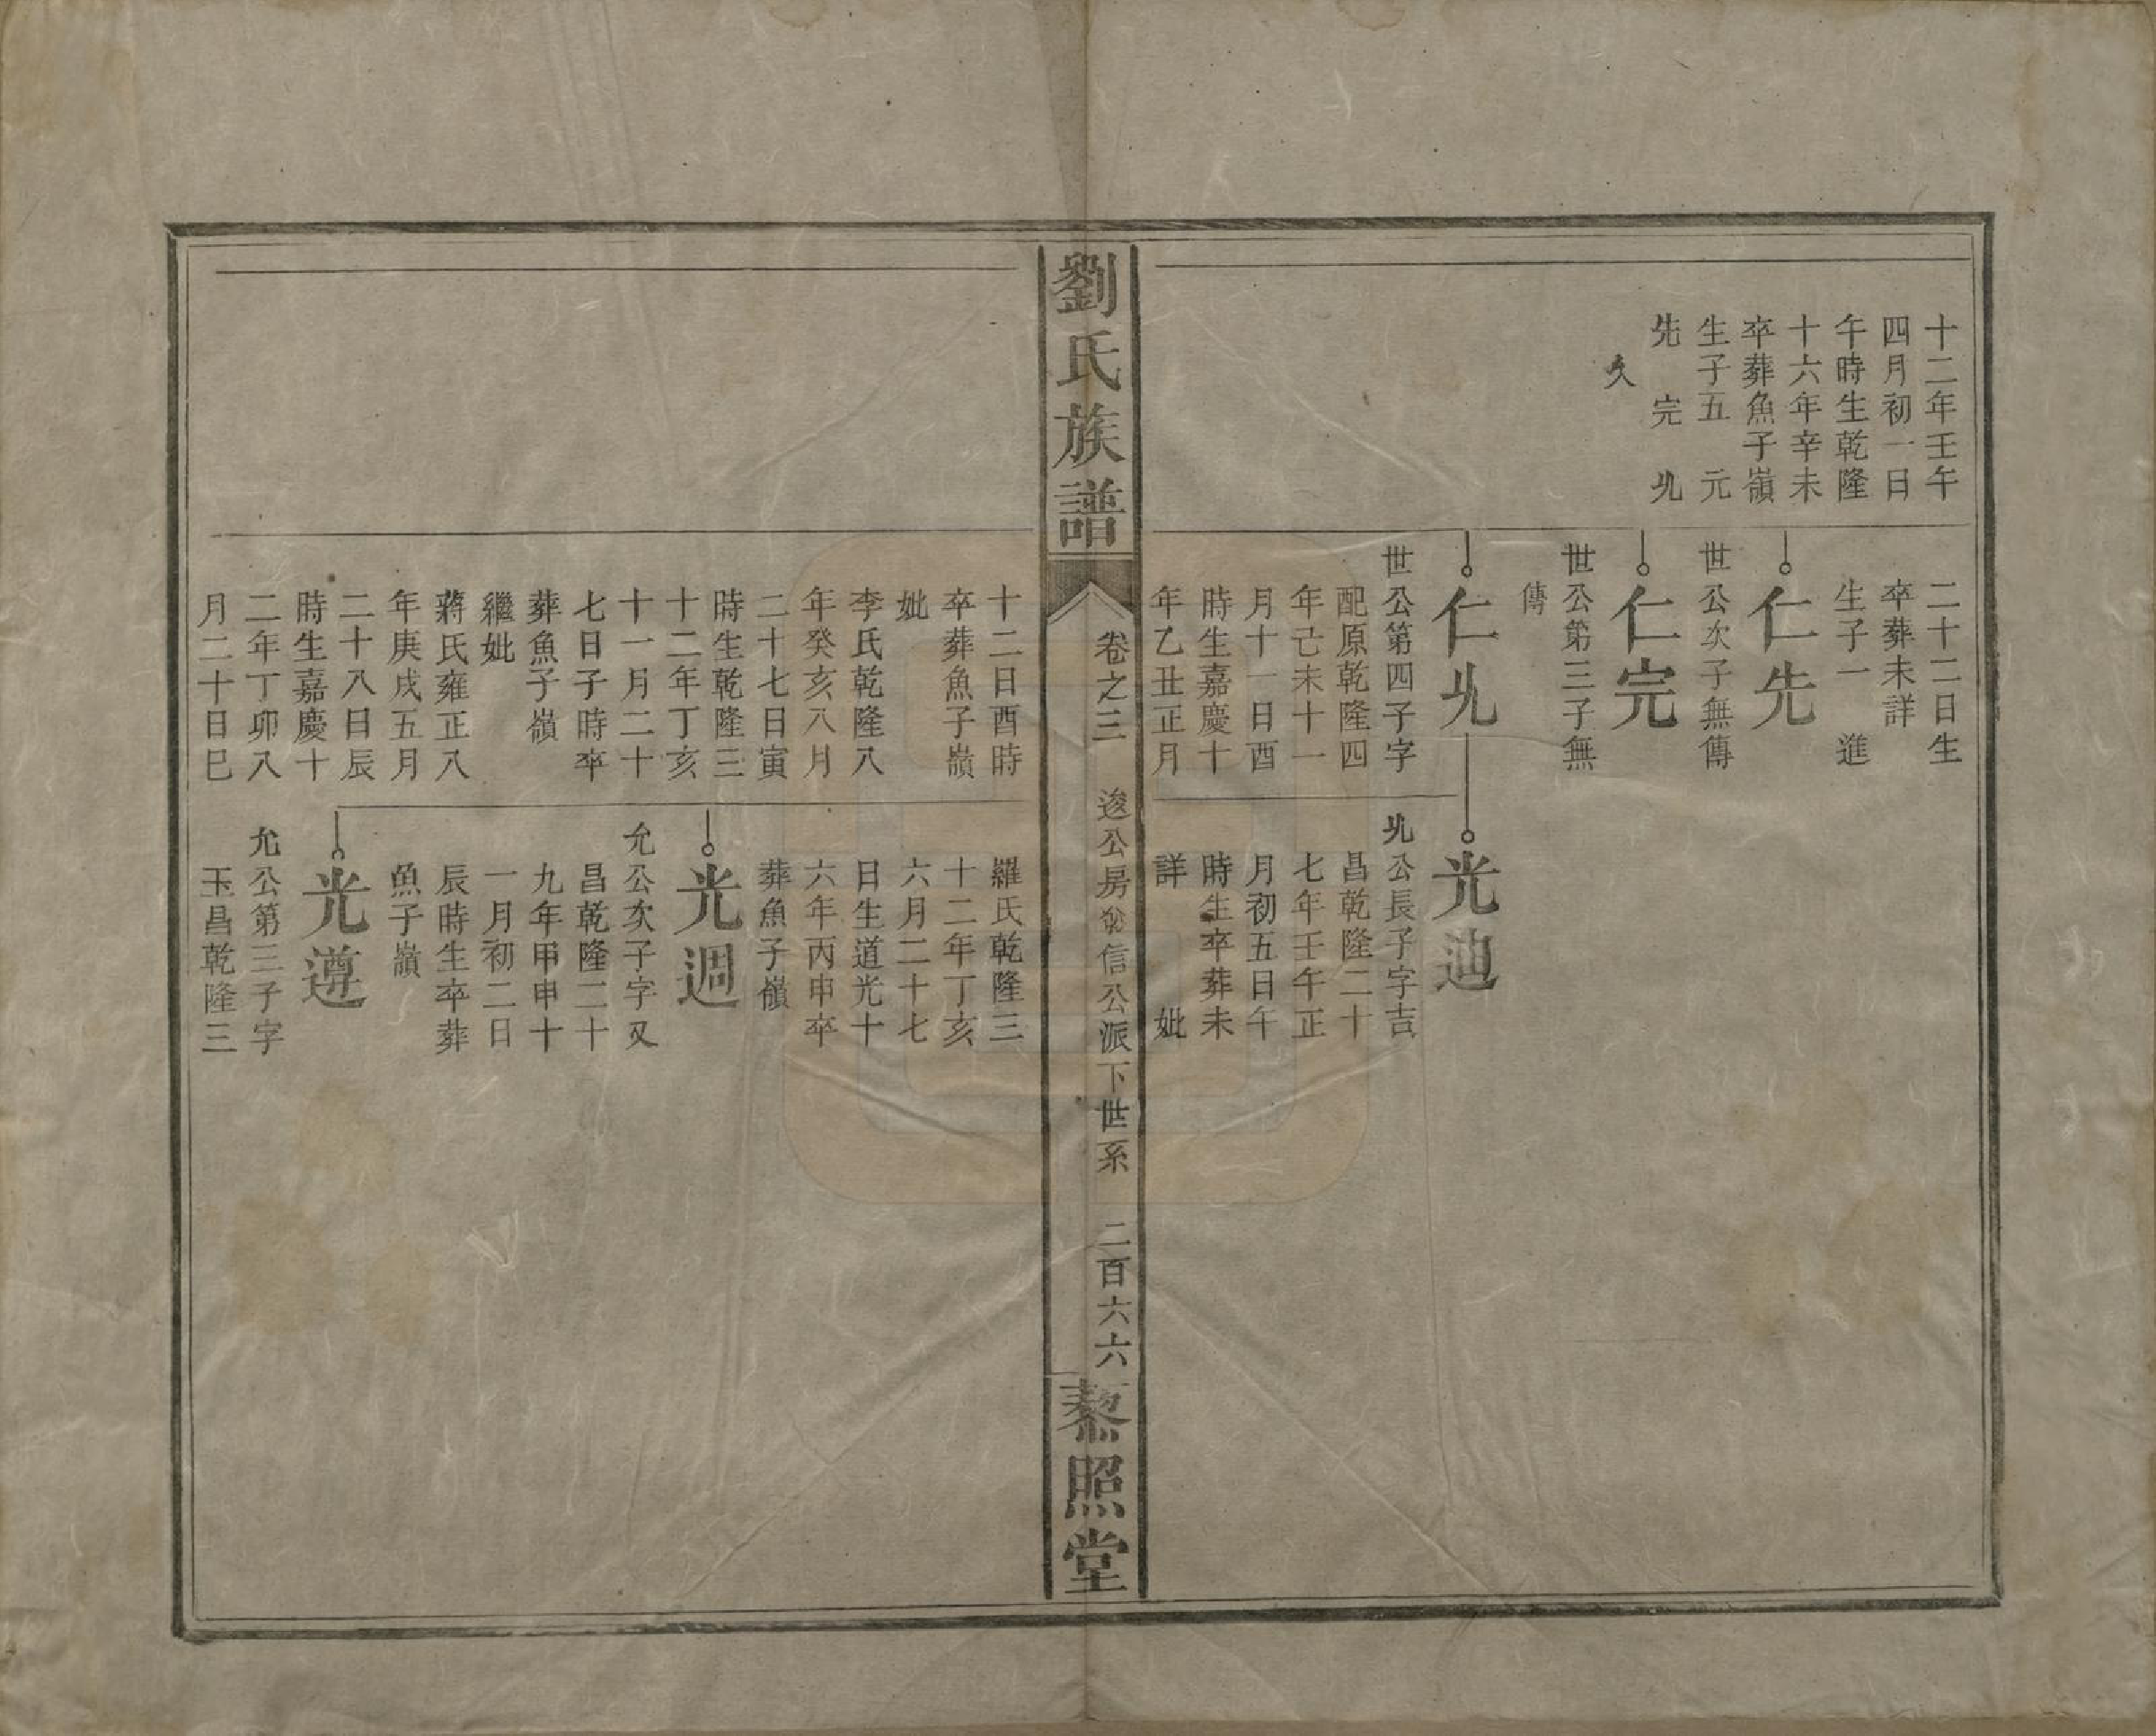 十二年壬午
四月初一日
午時生乾隆
十六年辛未
卒葬魚子嶺
生子五　元
先　完　允
久
二十二日生
卒葬未詳
生子一　進
仁先
世公次子無傳
仁完
世公第三子無
傳
仁允
世公第四子字
配原乾隆四
年己未十一
月十一日酉
時生嘉慶十
年乙丑正月
光迪
允公長子字吉
昌乾隆二十
七年壬午正
月初五日午
時生卒葬未
詳　妣
劉氏族譜
卷之三　逡公房　信公派下世系　二百六六
藜照堂
十二日酉時
卒葬魚子嶺
妣
李氏乾隆八
年癸亥八月
二十七日寅
時生乾隆三
十二年丁亥
十一月二十
七日子時卒
葬魚子嶺
繼妣
蔣氏雍正八
年庚戌五月
二十八日辰
時生嘉慶十
二年丁卯八
月二十日巳
羅氏乾隆三
十二年丁亥
六月二十七
日生道光十
六年丙申卒
葬魚子嶺
光週
允公次子字又
昌乾隆二十
九年甲申十
一月初二日
辰時生卒葬
魚子嶺
光遵
允公第三子字
玉昌乾隆三